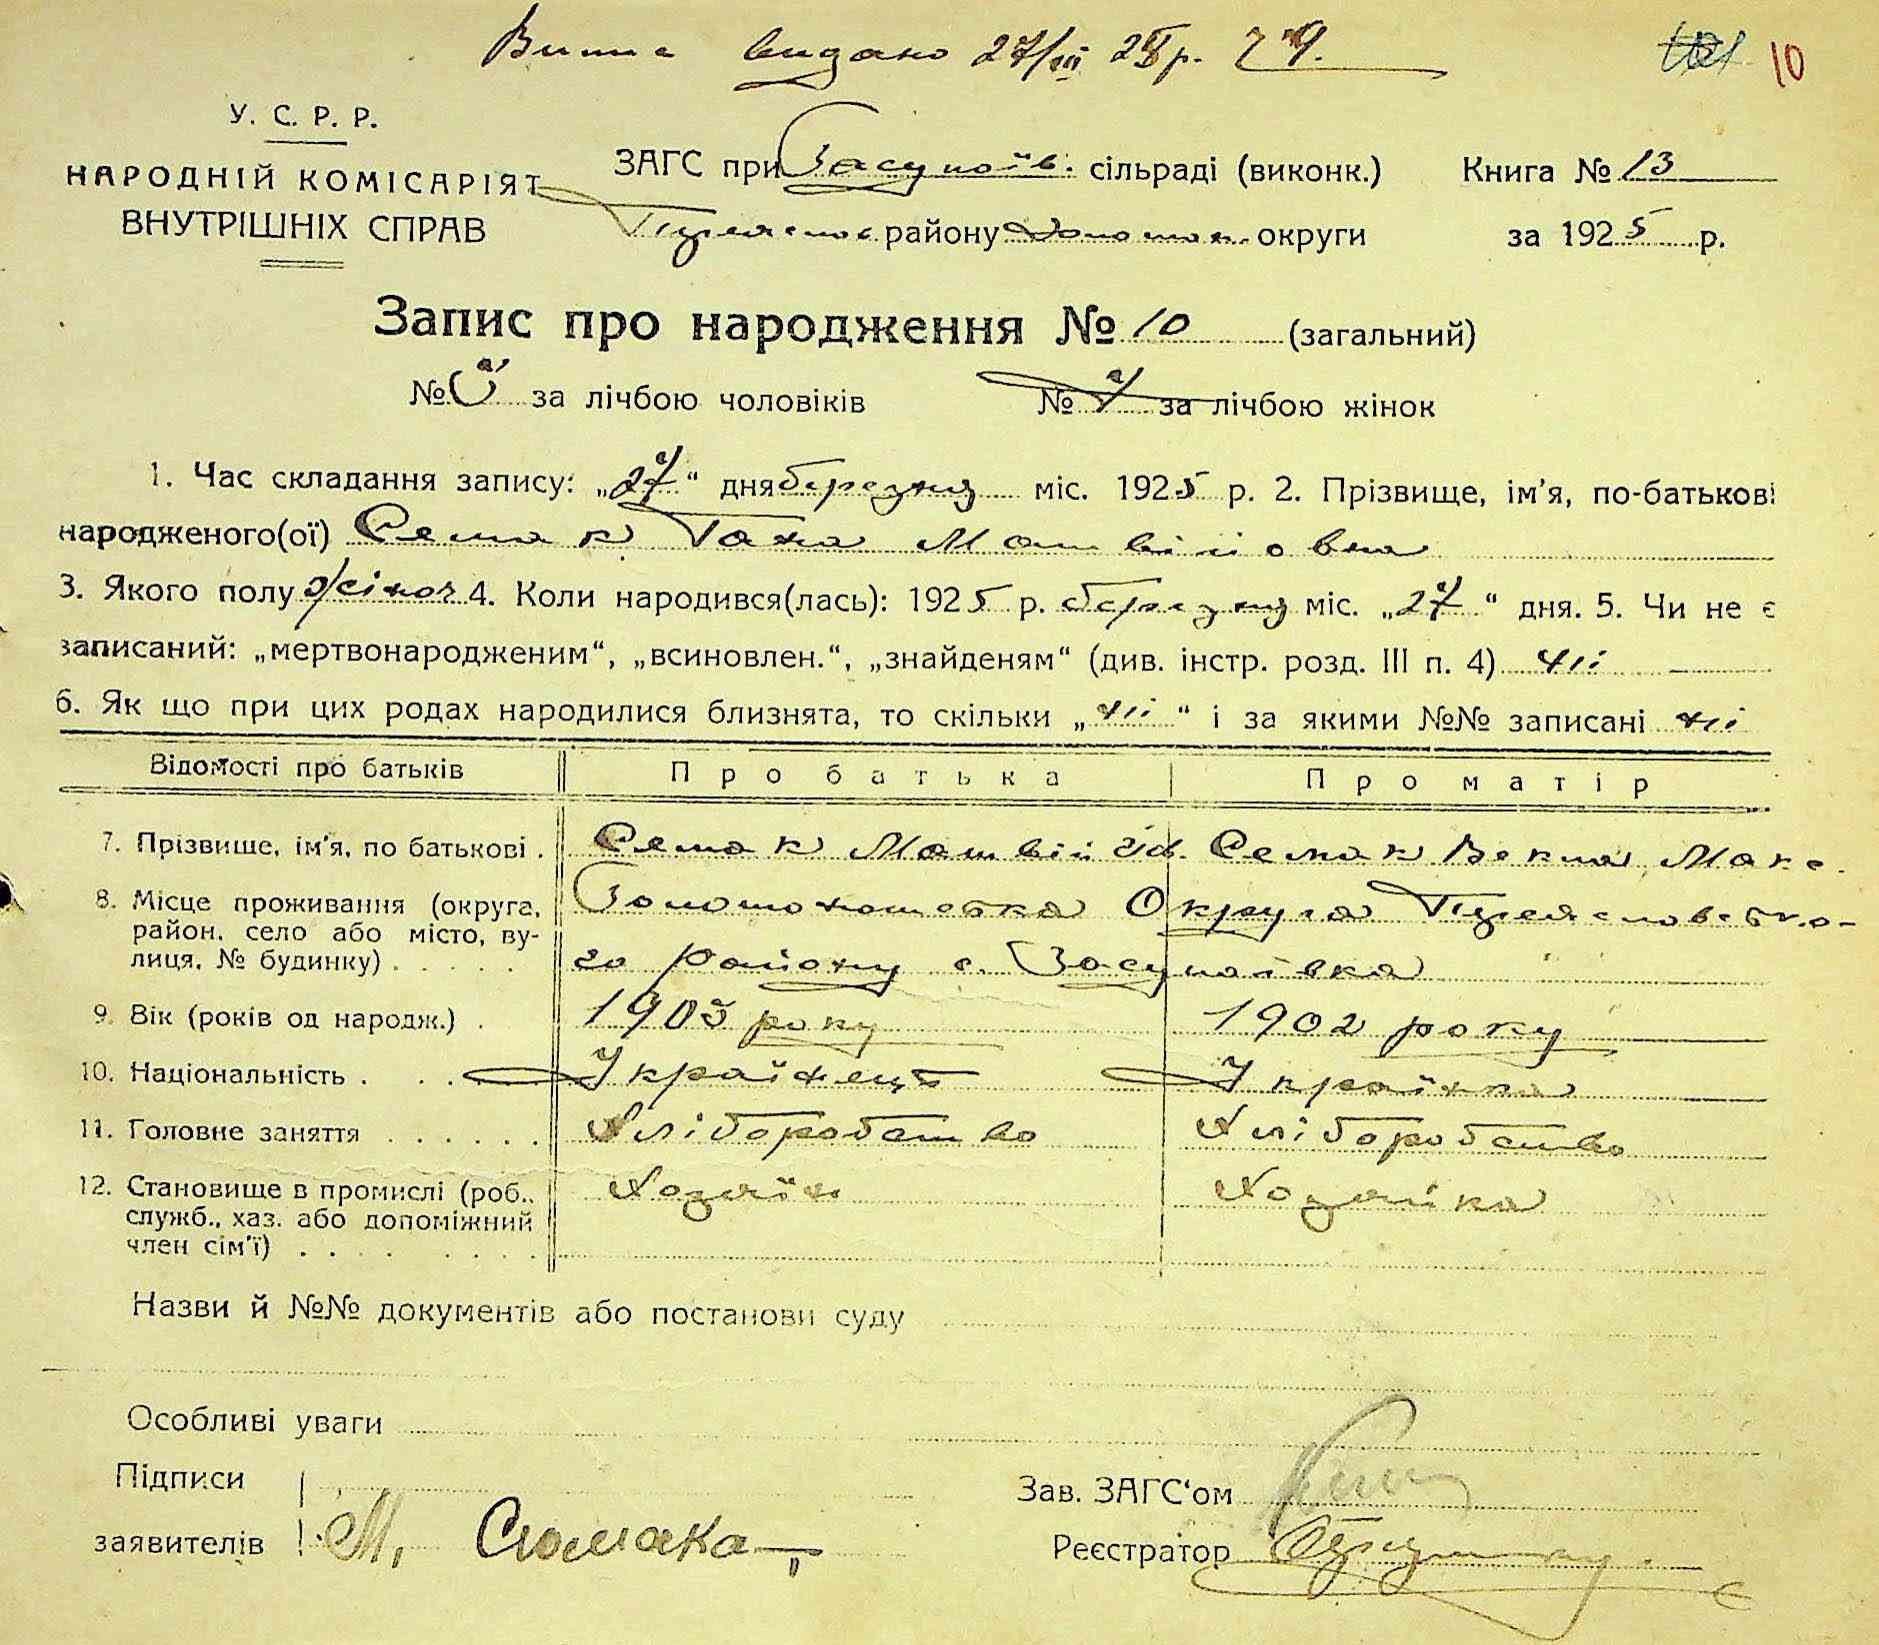 видано 27/III 25 р.
10
У. С. Р. Р.
НАРОДНІЙ КОМІСАРІЯТ
ВНУТРІШНІХ СПРАВ
ЗАГС при Засупоїв. сільраді (виконк.)
району округи
Книга № 13
за 1925 р.
Запис про народження № 10 (загальний)
№ за лічбою чоловіків № за лічбою жінок
1. Час складання запису: „27“ дня березня міс. 1925 р. 2. Прізвище, ім'я, по-батькові
народженого(ої) Семак Гана Матвійовна
3. Якого полу жіноч 4. Коли народився(лась): 1925 р. березня міс. „27“ дня. 5. Чи не є
записаний: „мертвонародженим“, „всиновлен.“, „знайденям“ (див. інстр. розд. III п. 4) ні
6. Як що при цих родах народилися близнята, то скільки „ні“ і за якими №№ записані ні
Відомості про батьків Про батька Про матір
7. Прізвище, ім'я, по батькові . Семак Матвій Ів. Семак Векла Макс.
8. Місце проживання (округа, район, село або місто, вулиця, № будинку) . . . . . Золотоношська Округа Переяславсько-
го району с. Засупоївка
9. Вік (років од народж.) . 1903 року 1902 року
10. Національність . . . Українець Українка
11. Головне заняття . . . . . . Хліборобство Хліборобство
12. Становище в промислі (роб., Хозяїн Хозяйка
служб., хаз. або допоміжний
член сім'ї) . . . . . . . .
Назви й №№ документів або постанови суду
Особливі уваги
Підписи
заявителів М. Сюмака
Зав. ЗАГС'ом
Реєстратор